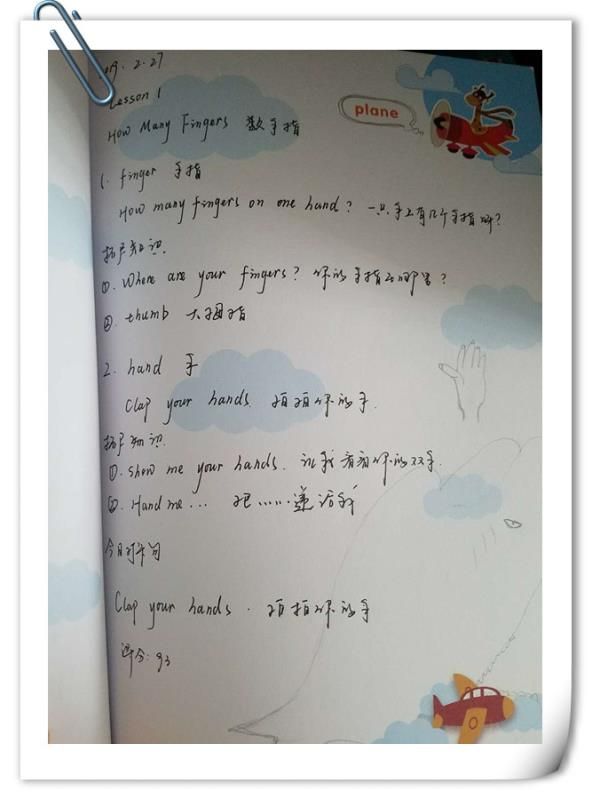 2019.2.27
Lesson 1
plane
How Many Fingers 数手指
1. finger 手指
How many fingers on one hand? 一只手上有几个手指呀?
拓展知识
①. Where are your fingers? 你的手指在哪里?
②. thumb 大拇指
2. hand 手
Clap your hands 拍拍你的手.
拓展知识
①. Show me your hands. 让我看看你的双手.
②. Hand me... 把……递给我
今日打卡句
Clap your hands. 拍拍你的手
评分: 93